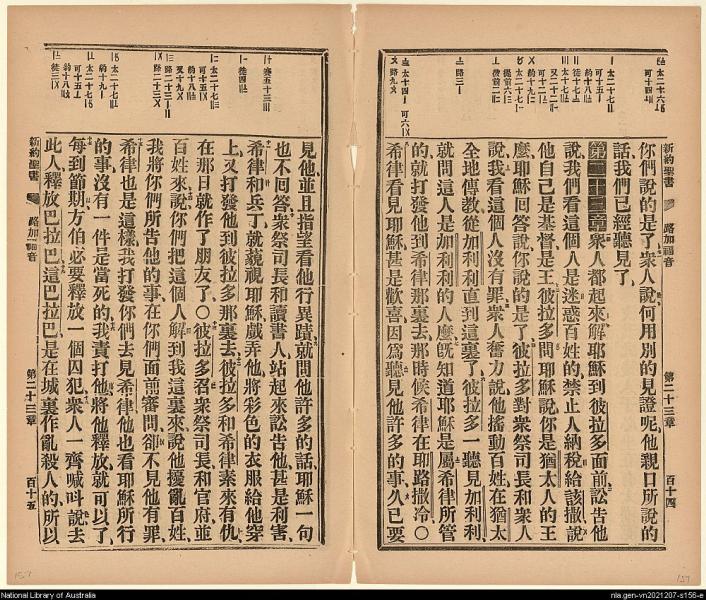 新約聖書 路加福音 第二十三章 百十四
你們說的是了衆人說何用別的見證呢他親口所說的
話我們已經聽見了
第二十三章衆人都起來解耶穌到彼拉多面前訟告他
說我們看這個人是迷惑百姓的禁止人納稅給該撒說
他自己是基督是王彼拉多問耶穌說你是猶太人的王
麼耶穌回答說你說的是了彼拉多對衆祭司長和衆人
說我看這個人沒有罪衆人奮力說他搖動百姓在猶太
全地傳教從加利利直到這裏了彼拉多一聽見加利利
就問這人是加利利的人麼旣知道耶穌是屬希律所管
的就打發他到希律那裏去那時候希律在耶路撒冷〇
希律看見耶穌甚是歡喜因爲聽見他許多的事久已要
見他並且指望看他行異蹟就問他許多的話耶穌一句
也不回答衆祭司長和讀書人站起來訟告他甚是利害
希律和兵丁就藐視耶穌戲弄他將彩色的衣服給他穿
上又打發他到彼拉多那裏去彼拉多和希律素來有仇
在那日就作了朋友了〇彼拉多召衆祭司長和官府並
百姓來說你們把這個人解到我這裏來說他擾亂百姓
我將你們所告他的事在你們面前審問卻不見他有罪
希律也是這樣我打發你們去見希律他也看耶穌所行
的事沒有一件是當死的我責打他將他釋放就可以了
每到節期方伯必要釋放一個囚犯衆人一齊喊叫說去
此人釋放巴拉巴這巴拉巴是在城裏作亂殺人的所以
新約聖書 路加福音 第二十三章 百十五
National Library of Australia
nla.gen-vn2021207-s156-e